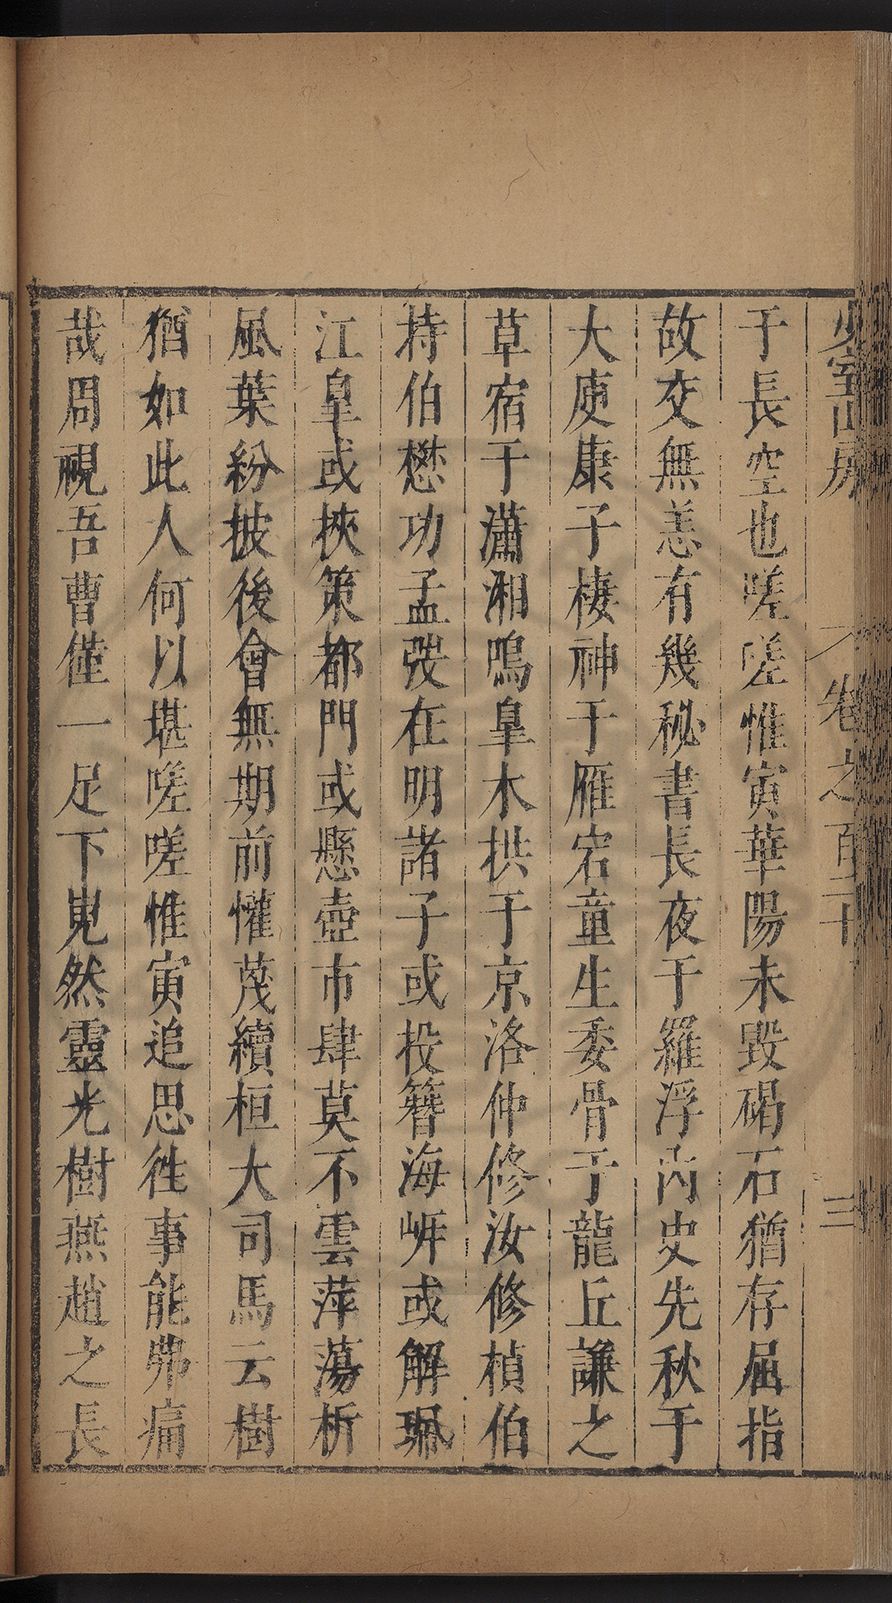 少室山房 卷之百二十 三
于長空也嗟嗟惟寅華陽未毀碣石猶存屈指
故交無恙有幾秘書長夜于羅浮內史先秋于
大庾康子棲神于雁宕童生委骨于龍丘謙之
草宿于瀟湘鳴皐木拱于京洛仲修汝修楨伯
持伯懋功孟弢在明諸子或投簪海㟁或解珮
江皐或挾策都門或懸壺市肆莫不雲萍蕩析
風葉紛披後會無期前懽茂續桓大司馬云樹
猶如此人何以堪嗟嗟惟寅追思徃事能弗痛
哉周視吾曹僅一足下嵬然靈光樹燕趙之長